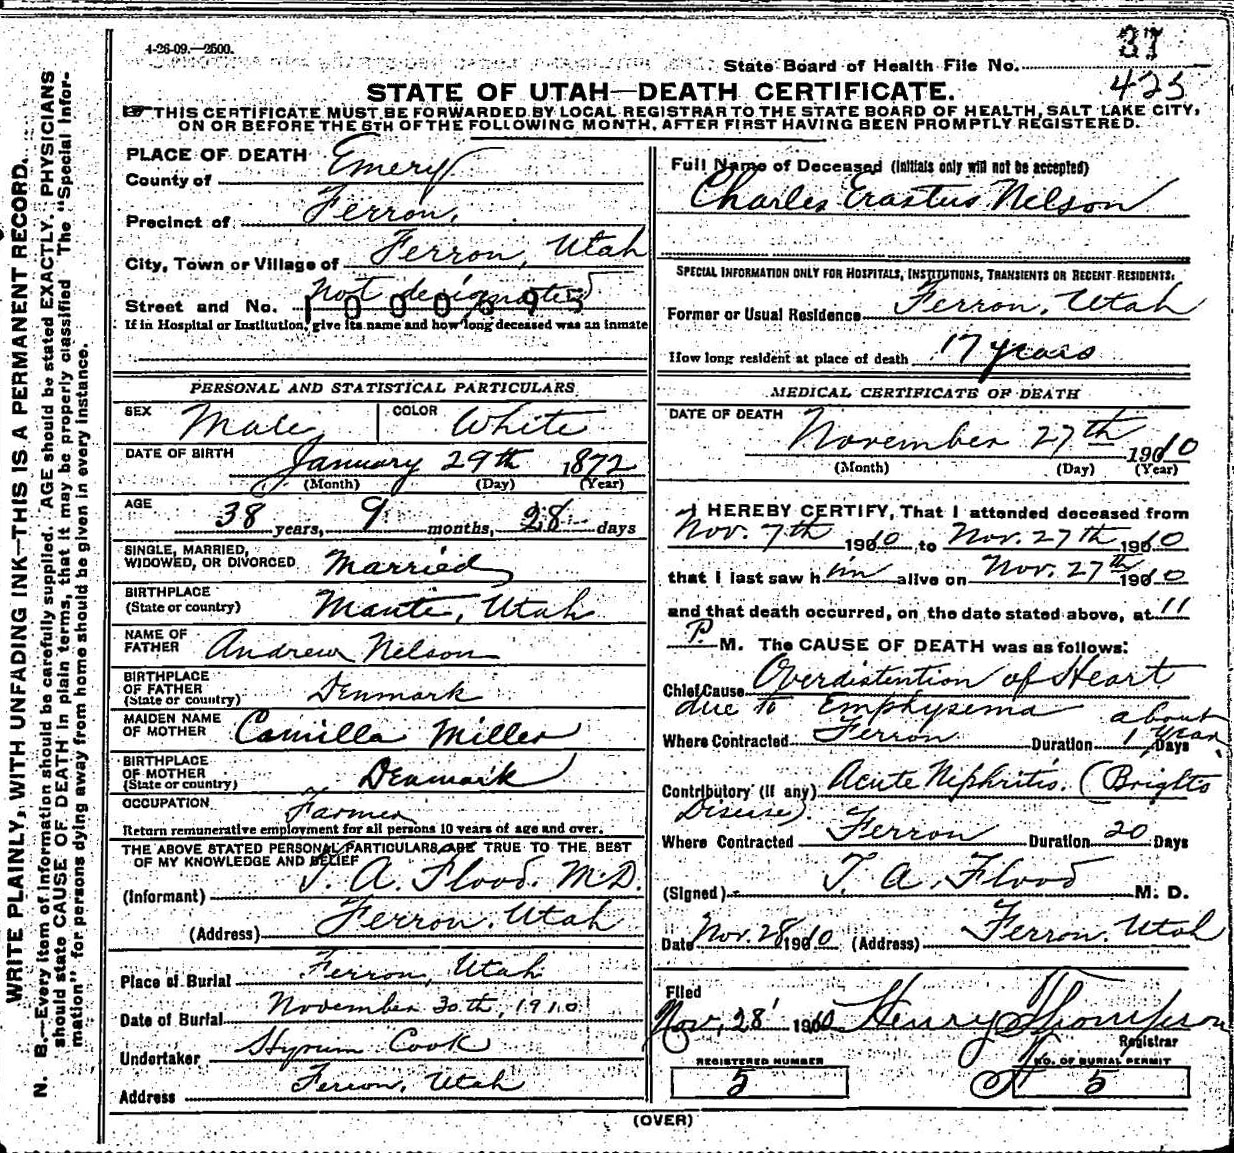 4-26-09.—2500.
37
State Board of Health File No.
425
STATE OF UTAH—DEATH CERTIFICATE.
THIS CERTIFICATE MUST BE FORWARDED BY LOCAL REGISTRAR TO THE STATE BOARD OF HEALTH, SALT LAKE CITY,
ON OR BEFORE THE 5TH OF THE FOLLOWING MONTH, AFTER FIRST HAVING BEEN PROMPTLY REGISTERED.
WRITE PLAINLY, WITH UNFADING INK—THIS IS A PERMANENT RECORD.
N. B.—Every item of information should be carefully supplied. AGE should be stated EXACTLY. PHYSICIANS
should state CAUSE OF DEATH in plain terms, that it may be properly classified The "Special Infor-
mation" for persons dying away from home should be given in every instance.
PLACE OF DEATH
County of Emery
Precinct of Ferron.
City, Town or Village of Ferron, Utah
Street and No. Not designated
1000695
If in Hospital or Institution, give its name and how long deceased was an inmate
PERSONAL AND STATISTICAL PARTICULARS
SEX Male COLOR White
DATE OF BIRTH
January 29th 1872
(Month) (Day) (Year)
AGE
38 years, 9 months, 28 days
SINGLE, MARRIED,
WIDOWED, OR DIVORCED Married
BIRTHPLACE
(State or country) Manti, Utah
NAME OF
FATHER Andrew Nelson
BIRTHPLACE
OF FATHER
(State or country) Denmark
MAIDEN NAME
OF MOTHER Camilla Miller
BIRTHPLACE
OF MOTHER
(State or country) Denmark
OCCUPATION Farmer
Return remunerative employment for all persons 10 years of age and over.
THE ABOVE STATED PERSONAL PARTICULARS ARE TRUE TO THE BEST
OF MY KNOWLEDGE AND BELIEF
(Informant) T. A. Flood. M.D.
(Address) Ferron, Utah
Place of Burial Ferron, Utah
Date of Burial November 30th, 1910
Undertaker Hyrum Cook
Address Ferron, Utah
Full Name of Deceased (Initials only will not be accepted)
Charles Erastus Nelson
SPECIAL INFORMATION ONLY FOR HOSPITALS, INSTITUTIONS, TRANSIENTS OR RECENT RESIDENTS:
Former or Usual Residence Ferron, Utah
How long resident at place of death 17 years
MEDICAL CERTIFICATE OF DEATH
DATE OF DEATH
November 27th 1910
(Month) (Day) (Year)
I HEREBY CERTIFY, That I attended deceased from
Nov. 7th 1910 to Nov. 27th 1910
that I last saw him alive on Nov. 27th 1910
and that death occurred, on the date stated above, at 11
P. M. The CAUSE OF DEATH was as follows:
Chief Cause Overdistention of Heart
due to Emphysema
Where Contracted Ferron Duration about 1 year Days
Contributory (if any) Acute Niphritis. (Brights
Disease).
Where Contracted Ferron Duration 20 Days
(Signed) T. A. Flood M. D.
Date Nov. 28 1910 (Address) Ferron. Utah
Filed
Nov, 28 1910 Henry Thompson
Registrar
REGISTERED NUMBER
5
NO. OF BURIAL PERMIT
5
(OVER)